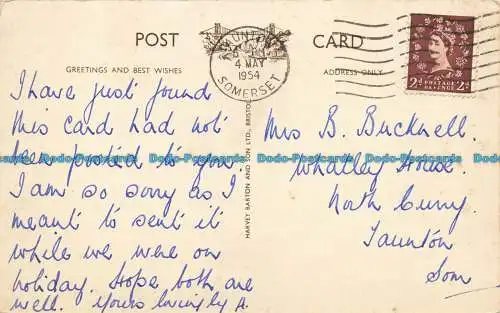 POST CARD
GREETINGS AND BEST WISHES
ADDRESS ONLY
TAUNTON
4 MAY
1954
SOMERSET
2d POSTAGE REVENUE 2d
I have just found
this card had not
been posted to you.
I am so sorry as I
meant to sent it
while we were on
holiday. Hope both are
well. Yours lovingly A.
HARVEY BARTON AND SON LTD., BRISTOL
Mrs B. Bucknell.
Whatley House.
North Curry.
Taunton
Som
Dodo-Postcards Dodo-Postcards Dodo-Postcards Dodo-Postcards